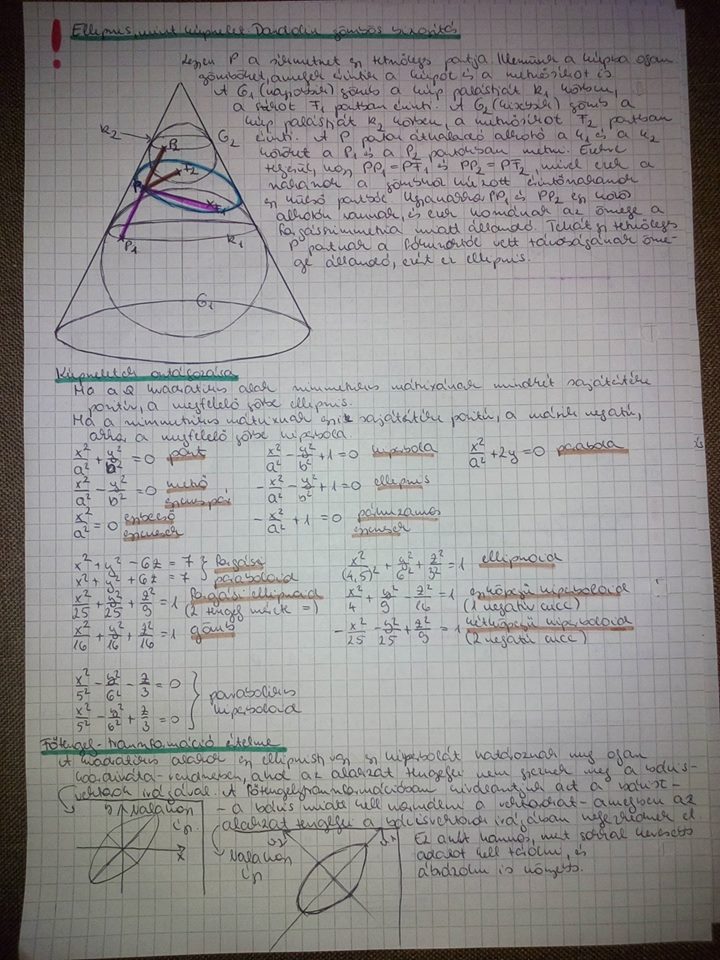 Ellipszis, mint kúpszelet Dandelin gömbös bizonyítás
Legyen P a síkmetszet egy tetszőleges pontja. Illesszünk a kúpba olyan
gömböket, amelyek érintik a kúpot és a metszősíkot is.
A G1 (nagyobbik) gömb a kúp palástját k1 körben,
a síkot F1 pontban érinti. A G2 (kisebbik) gömb a
kúp palástját k2 körben, a metszősíkot F2 pontban
érinti. A P ponton áthaladó alkotó a k1 és a k2
köröket a P1 és a P2 pontokban metszi. Ezekre
teljesül, hogy PP1 = PF1 és PP2 = PF2, mivel ezek a
szakaszok a gömbhöz húzott érintőszakaszok
egy külső pontból. Ugyanakkor PP1 és PP2 egy közös
alkotón vannak, és ezek hosszának az összege a
forgásszimmetria miatt állandó. Tehát egy tetszőleges
P pontnak a fókuszoktól vett távolságának össze-
ge állandó, ezért ez ellipszis.
k2
G2
P2
F2
P
F1
P1
k1
G1
Kúpszeletek osztályozása
Ha a Q kvadratikus alak szimmetrikus mátrixának mindkét sajátértéke
pozitív, a megfelelő görbe ellipszis.
Ha a szimmetrikus mátrixnak egyik sajátértéke pozitív, a másik negatív,
akkor a megfelelő görbe hiperbola.
x²/a² + y²/b² = 0 pont
x²/a² - y²/b² + 1 = 0 hiperbola
x²/a² + 2y = 0 parabola
x²/a² - y²/b² = 0 metsző egyenespár
-x²/a² - y²/b² + 1 = 0 ellipszis
x²/a² = 0 egybeeső egyenesek
-x²/a² + 1 = 0 párhuzamos egyenesek
x² + y² - 6z = 7 } forgási
x² + y² + 6z = 7 } paraboloid
x²/(4,5)² + y²/6² + z²/3² = 1 ellipszoid
x²/25 + y²/25 + z²/9 = 1 forgási ellipszoid
(2 tengely mérték =)
x²/4 + y²/9 - z²/16 = 1 egyköpenyű hiperboloid
(1 negatív cucc)
x²/16 + y²/16 + z²/16 = 1 gömb
-x²/25 - y²/25 + z²/9 = 1 kétköpenyű hiperboloid
(2 negatív cucc)
x²/5² - y²/6² - z/3 = 0
x²/5² - y²/6² + z/3 = 0
} parabolikus
hiperboloid
Főtengely-transzformáció értelme
A kvadratikus alakok egy ellipszist vagy egy hiperbolát határoznak meg olyan
koordináta-rendszerben, ahol az alakzat tengelyei nem esnek meg a bázis-
vektorok irányával. A főtengelytranszformációban kiválasztjuk azt a bázist-
- a bázis miatt kell normálni a vektorokat - amelyben az
alakzat tengelyei a bázisvektorok irányában helyezkednek el.
Valahogy
így
y
x
Valahogy
így
Ez azért hasznos, mert sokkal kevesebb
adatot kell tárolni, és
ábrázolni is könnyebb.